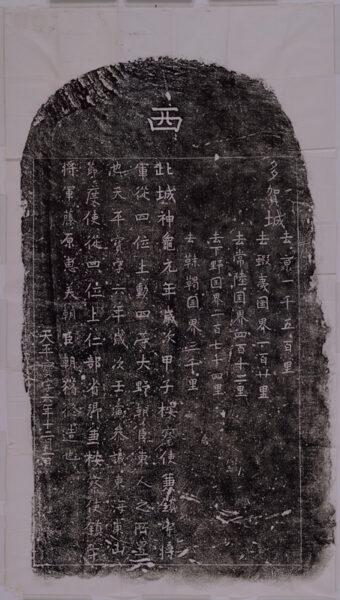 西
多賀城
去京一千五百里
去蝦夷国界一百廿里
去常陸国界四百十二里
去下野国界二百七十四里
去靺鞨国界三千里
此城神龜元年歳次甲子按察使兼鎮守將
軍從四位上勳四等大野朝臣東人之所置
也天平寶字六年歳次壬寅参議東海東山
節度使從四位上仁部省卿兼按察使鎮守
將軍藤原惠美朝臣朝獦修造也
天平寶字六年十二月一日